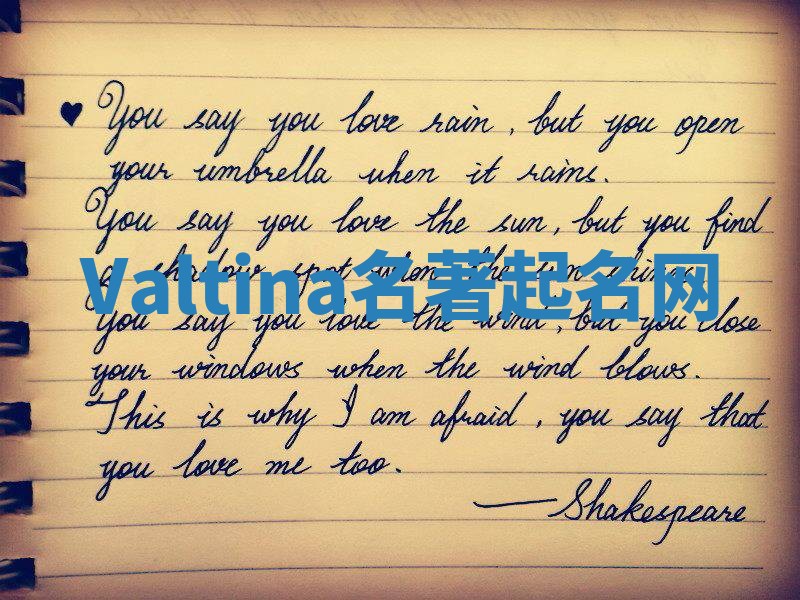 ♥ You say you love rain, but you open
your umbrella when it rains.
You say you love the sun, but you find
a shadow spot when the sun shines.
Valtina名著起名网
You say you love the wind, but you close
your windows when the wind blows.
This is why I am afraid, you say that
you love me too.
— Shakespeare